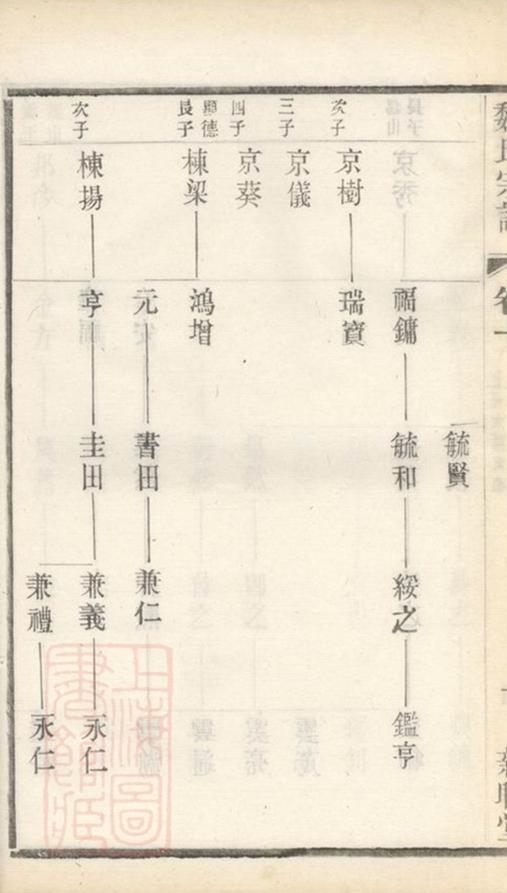 魏氏宗譜
卷一
毓賢
長子
京秀
福鏞
毓和
綏之
鑑亨
次子
京樹
瑞寶
三子
京儀
四子
京葵
顯德
長子
棟梁
鴻增
元
書田
兼仁
次子
棟揚
亨
圭田
兼義
永仁
兼禮
永仁